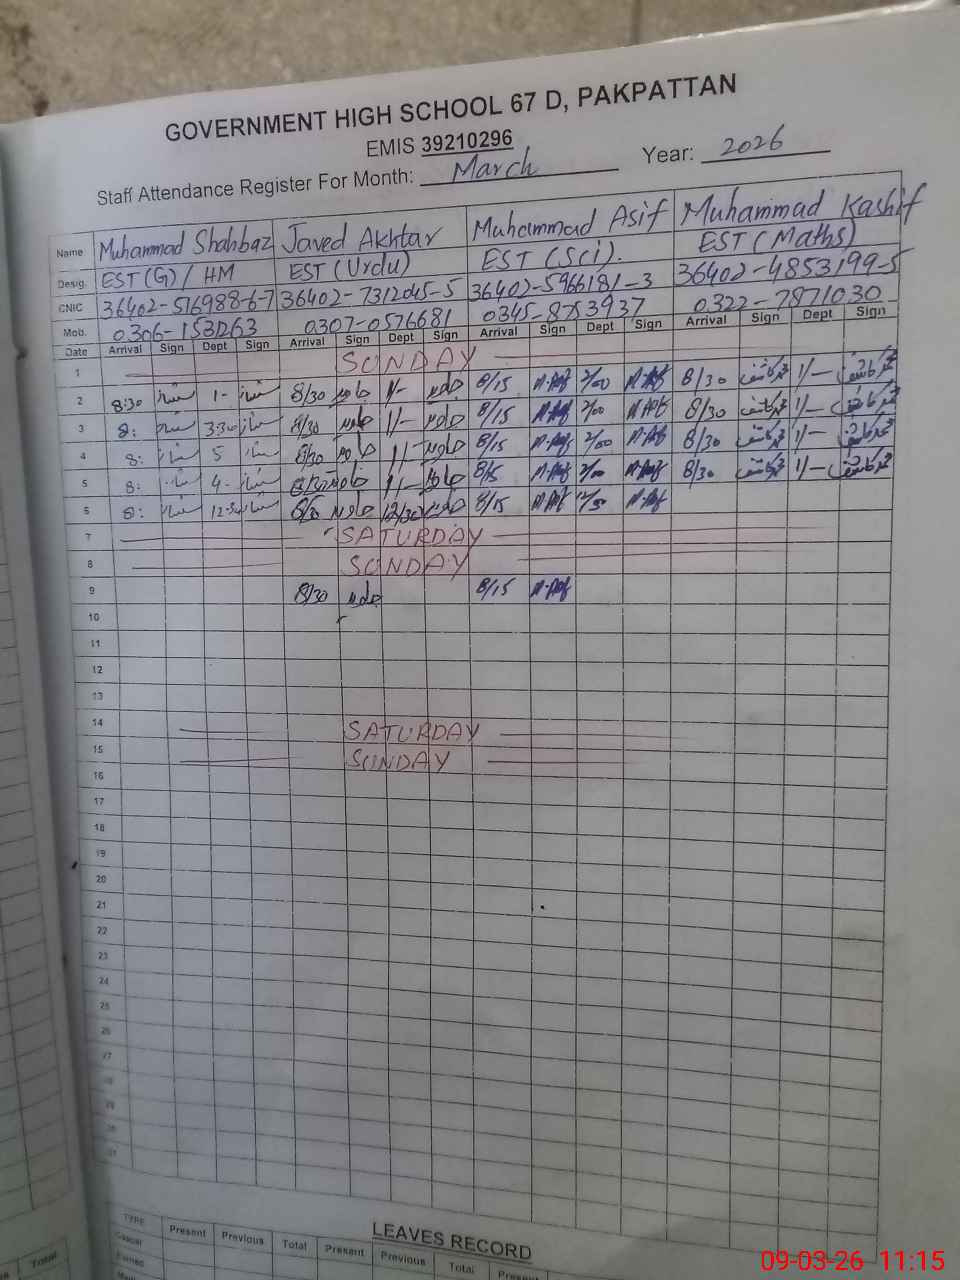 GOVERNMENT HIGH SCHOOL 67 D, PAKPATTAN
EMIS 39210296
Staff Attendance Register For Month: March Year: 2026
Name Muhammad Shahbaz Javed Akhtar Muhammad Asif Muhammad Kashif
Desig. EST (G) / HM EST (Urdu) EST (Sci). EST (Maths)
CNIC 36402-516988-6-7 36402-7312045-5 36402-5966181-3 36402-4853199-5
Mob. 0307-0576681 0345-8753937 0322-7871030
Date Arrival Sign Dept Sign Arrival Sign Dept Sign Arrival Sign Dept Sign Arrival Sign Dept Sign
1 SUNDAY
2 8:30 شہباز 1- شہباز 8/30 جاوید 1/- جاوید 8/15 M.Asif 2/00 M.Asif 8/30 محمد کاشف 1/- محمد کاشف
3 8: شہباز 3:30 شہباز 8/30 جاوید 1/- جاوید 8/15 M.Asif 2/00 M.Asif 8/30 محمد کاشف 1/- محمد کاشف
4 8: شہباز 5 شہباز 8/30 جاوید 1/- جاوید 8/15 M.Asif 2/00 M.Asif 8/30 محمد کاشف 1/- محمد کاشف
5 8: شہباز 4- شہباز 8/30 جاوید 1/- جاوید 8/15 M.Asif 2/00 M.Asif 8/30 محمد کاشف 1/- محمد کاشف
6 8: شہباز شہباز 8/30 جاوید 12/30 جاوید 8/15 M.Asif M.Asif
7 SATURDAY
8 SUNDAY
9 8/30 جاوید 8/15 M.Asif
10
11
12
13
14 SATURDAY
15 SUNDAY
16
17
18
19
20
21
22
23
24
25
26
27
LEAVES RECORD
TYPE Present Previous Total Present Previous Total Present
Casual
Total
09-03-26 11:15